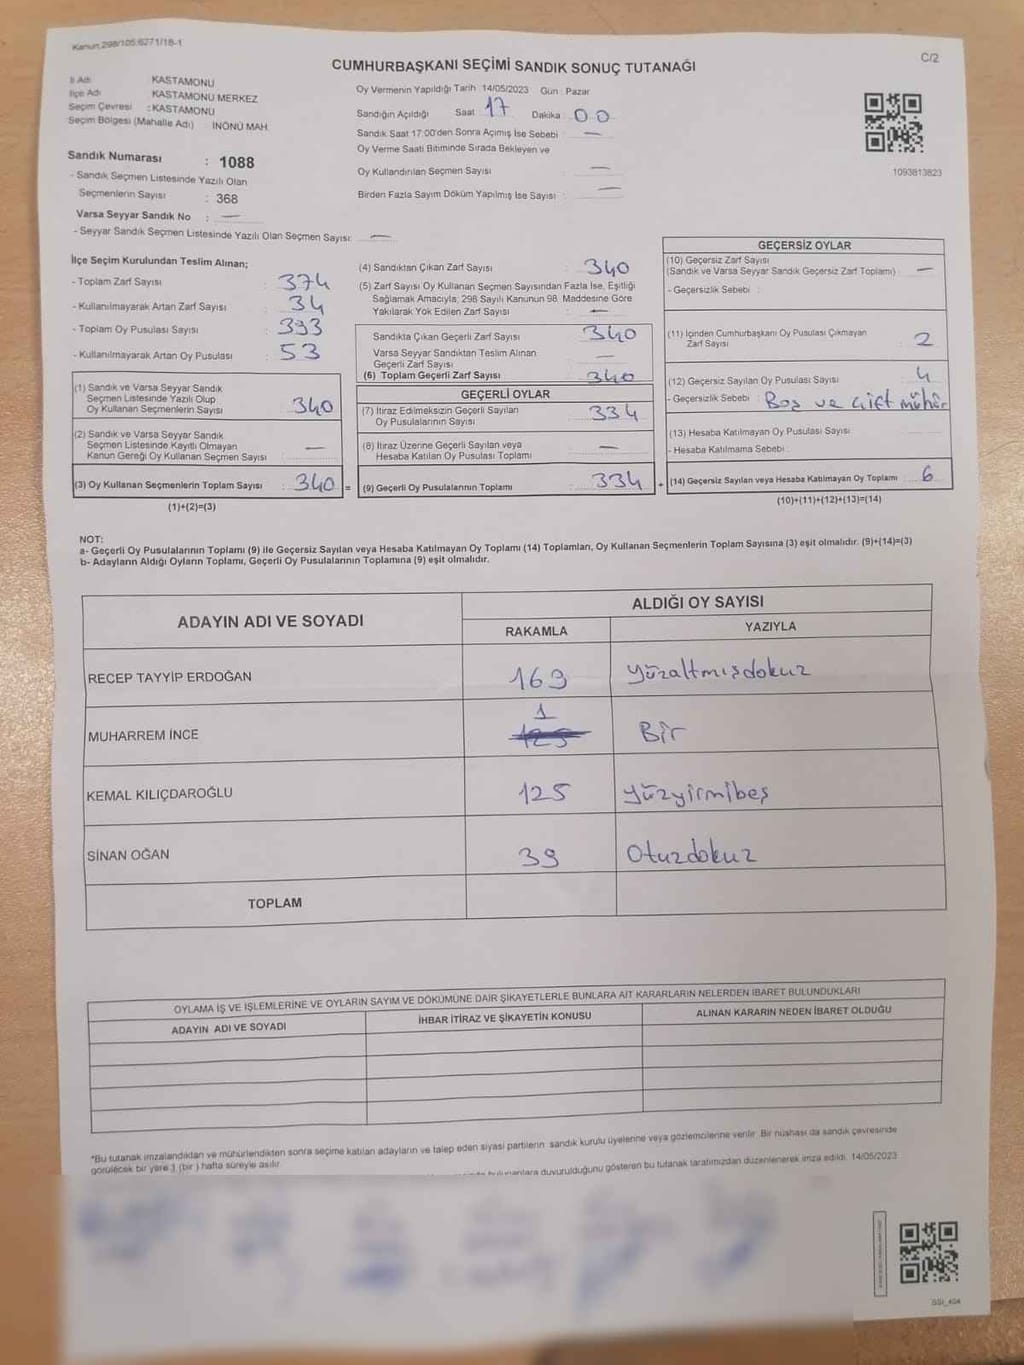 Kanun:298/105:6271/18-1
C/2
CUMHURBAŞKANI SEÇİMİ SANDIK SONUÇ TUTANAĞI
İl Adı KASTAMONU
İlçe Adı KASTAMONU MERKEZ
Seçim Çevresi : KASTAMONU
Seçim Bölgesi (Mahalle Adı) : İNÖNÜ MAH.
Oy Vermenin Yapıldığı Tarih 14/05/2023 Gün : Pazar
Sandığın Açıldığı Saat 17 Dakika 00
Sandık Saat 17:00'den Sonra Açımış İse Sebebi : —
Oy Verme Saati Bitiminde Sırada Bekleyen ve
Oy Kullandırılan Seçmen Sayısı —
Birden Fazla Sayım Döküm Yapılmış İse Sayısı : —
1093813823
Sandık Numarası : 1088
- Sandık Seçmen Listesinde Yazılı Olan
Seçmenlerin Sayısı : 368
Varsa Seyyar Sandık No : —
- Seyyar Sandık Seçmen Listesinde Yazılı Olan Seçmen Sayısı: —
İlçe Seçim Kurulundan Teslim Alınan;
- Toplam Zarf Sayısı : 374
- Kullanılmayarak Artan Zarf Sayısı : 34
- Toplam Oy Pusulası Sayısı : 393
- Kullanılmayarak Artan Oy Pusulası : 53
(1) Sandık ve Varsa Seyyar Sandık
Seçmen Listesinde Yazılı Olup
Oy Kullanan Seçmenlerin Sayısı : 340
(2) Sandık ve Varsa Seyyar Sandık
Seçmen Listesinde Kayıtlı Olmayan
Kanun Gereği Oy Kullanan Seçmen Sayısı : —
(3) Oy Kullanan Seçmenlerin Toplam Sayısı : 340 =
(1)+(2)=(3)
(4) Sandıktan Çıkan Zarf Sayısı : 340
(5) Zarf Sayısı Oy Kullanan Seçmen Sayısından Fazla İse, Eşitliği
Sağlamak Amacıyla; 298 Sayılı Kanunun 98. Maddesine Göre
Yakılarak Yok Edilen Zarf Sayısı : —
Sandıkta Çıkan Geçerli Zarf Sayısı 340
Varsa Seyyar Sandıktan Teslim Alınan
Geçerli Zarf Sayısı —
(6) Toplam Geçerli Zarf Sayısı 340
GEÇERLİ OYLAR
(7) İtiraz Edilmeksizin Geçerli Sayılan
Oy Pusulalarının Sayısı : 334
(8) İtiraz Üzerine Geçerli Sayılan veya
Hesaba Katılan Oy Pusulası Toplamı : —
(9) Geçerli Oy Pusulalarının Toplamı : 334 +
GEÇERSİZ OYLAR
(10) Geçersiz Zarf Sayısı
(Sandık ve Varsa Seyyar Sandık Geçersiz Zarf Toplamı) : —
- Geçersizlik Sebebi :
(11) İçinden Cumhurbaşkanı Oy Pusulası Çıkmayan
Zarf Sayısı : 2
(12) Geçersiz Sayılan Oy Pusulası Sayısı : 4
- Geçersizlik Sebebi : Boş ve çift mühür
(13) Hesaba Katılmayan Oy Pusulası Sayısı :
- Hesaba Katılmama Sebebi :
(14) Geçersiz Sayılan veya Hesaba Katılmayan Oy Toplamı : 6
(10)+(11)+(12)+(13)=(14)
NOT:
a- Geçerli Oy Pusulalarının Toplamı (9) ile Geçersiz Sayılan veya Hesaba Katılmayan Oy Toplamı (14) Toplamları, Oy Kullanan Seçmenlerin Toplam Sayısına (3) eşit olmalıdır. (9)+(14)=(3)
b- Adayların Aldığı Oyların Toplamı, Geçerli Oy Pusulalarının Toplamına (9) eşit olmalıdır.
ADAYIN ADI VE SOYADI ALDIĞI OY SAYISI
RAKAMLA YAZIYLA
RECEP TAYYİP ERDOĞAN 169 yüzaltmışdokuz
1
MUHARREM İNCE 125 Bir
KEMAL KILIÇDAROĞLU 125 yüzyirmibeş
SİNAN OĞAN 39 Otuzdokuz
TOPLAM
OYLAMA İŞ VE İŞLEMLERİNE VE OYLARIN SAYIM VE DÖKÜMÜNE DAİR ŞİKAYETLERLE BUNLARA AİT KARARLARIN NELERDEN İBARET BULUNDUKLARI
ADAYIN ADI VE SOYADI İHBAR İTİRAZ VE ŞİKAYETİN KONUSU ALINAN KARARIN NEDEN İBARET OLDUĞU
*Bu tutanak imzalandıktan ve mühürlendikten sonra seçime katılan adayların ve talep eden siyasi partilerin sandık kurulu üyelerine veya gözlemcilerine verilir. Bir nüshası da sandık çevresinde
görülecek bir yere 1 (bir) hafta süreyle asılır.
bulunanlara duyurulduğunu gösteren bu tutanak tarafımızdan düzenlenerek imza edildi. 14/05/2023